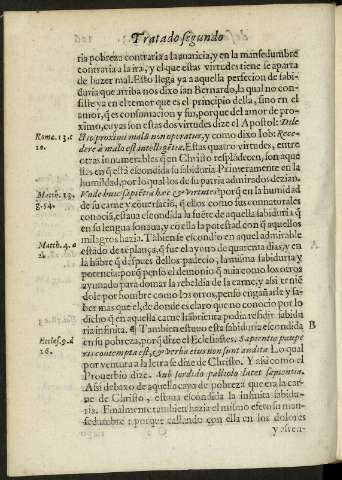 Tratado segundo
ria pobreza contraria a la auaricia, y en la mansedumbre
contraria a la ira, y el que estas virtudes tiene se aparta
de hazer mal. Esto llega ya a aquella perfecion de sabi-
duria que arriba nos dixo san Bernardo, la qual no con-
siste ya en el temor que es el principio della, sino en el
amor, q̃ es consumacion y fin, porque del amor de pro-
ximo, cuyas son estas dos virtudes dize el Apostol: Dile-
Rom. 13. c
10.
ctio proximi malũ non operatur, y como dixo Iob: Rece-
dere à malo est intelligẽtia. Estas quatro virtudes, entre
otras innumerables q̃ en Christo resplãdecen, son aque
stas en q̃ està escondida su sabiduria. Primeramente en la
humildad, por lo qual los de su patria admirados dezian,
Matth. 13.
g. 54.
Vnde huic sapiẽtia hæc & virtutes? por q̃ en la humildad
de su carne y conuersaciõ, q̃ ellos como sus connaturales
conociã, estaua escondida la fuẽte de aquella sabiduria q̃
en su lengua sonaua, y cõ ella la potestad con q̃ aquellos
milagros hazia. Tambien se escondio en aquel admirable
Matth. 4. a
2.
estado de tẽplança, q̃ fue el ayuno de quarenta dias, y en
la hãbre q̃ despues dellos padecio, la misma sabiduria y
potencia: porq̃ penso el demonio q̃ auia como los otros
ayunado para domar la rebeldia de la carne, y assi tenié
dole por hombre como los otros, penso engañarle y sa-
ber mas que el, de donde es claro que no conocio por lo
dicho q̃ en aquella carne hãbrienta podia residir sabidu
ria infinita. ¶ Tambien estuuo esta sabiduria escondida
B
en su pobreza, por q̃ dize el Eclesiastes. Sapientia paupe
Eccles. 9. d
16.
ris contempta est, & verba eius non sunt audita. Lo qual
por ventura a la letra se dize de Christo. Y assi como el
Prouerbio dize. Sub sordido palliolo latet sapientia.
Assi debaxo de aquella capa de pobreza que era la car-
ne de Christo, estaua escondida la infinita sabidu-
ria. Finalmente tambien hazia el mismo efeto su man-
sedumbre: porque callando con ella en los dolores
y afren-